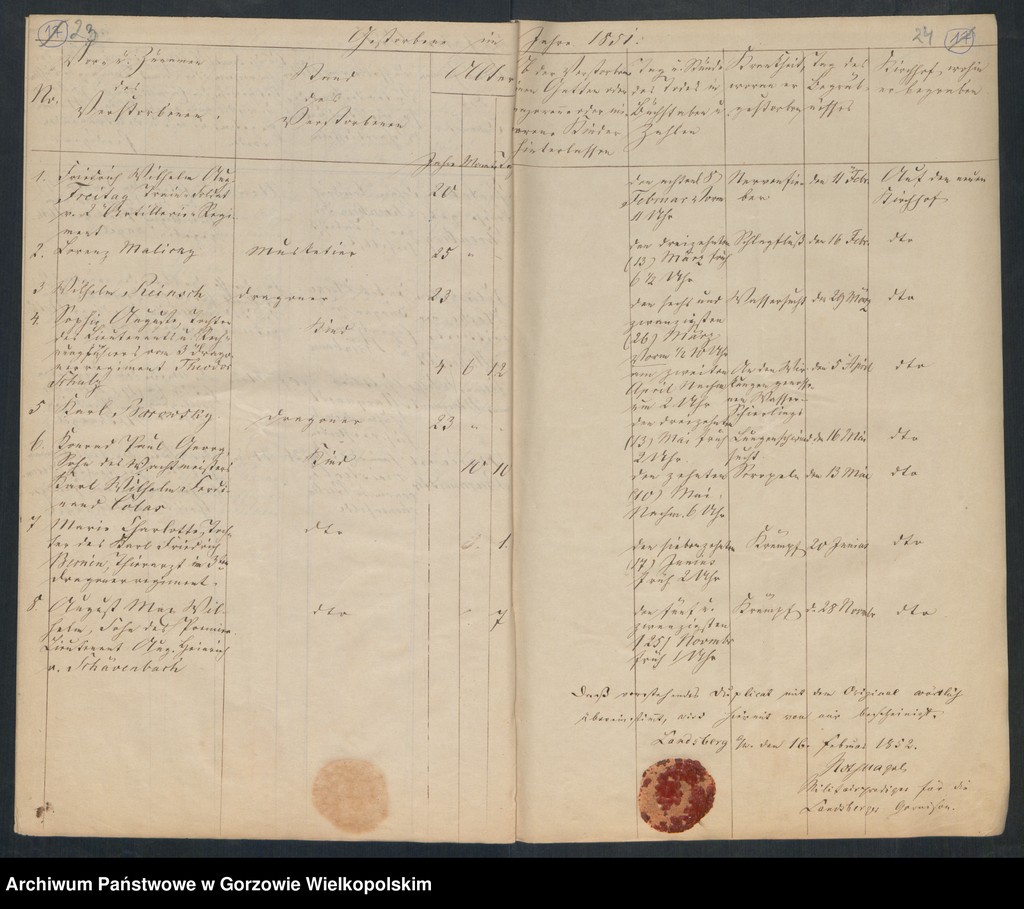 17 23
24 17
Gestorbene im Jahre 1851.
Nr.
Vor- u. Zunamen
des
Verstorbenen.
Stand
des
Verstorbenen
Alter
Jahre Monate Tag
Ob der Verstorbene
einen Gatten oder
oder min-
Kinder
hinterlassen
Tag u. Stunde
des Todes in
Buchstaben u.
Zahlen
Krankheit,
woran er
gestorben
Tag des
Begräb-
nisses
Kirchhof, wohin
er begraben
1. Friedrich Wilhelm Aug.
Freitag Train-Soldat
v. 2 Artillerie-Regi-
ment
20
den achten 8
Februar Vorm
11 Uhr
Nervenfie-
ber
den 11 Febr.
Auf den neuen
Kirchhof
2. Lorenz Malicky
Musketier
25 "
den dreizehnten
(13) März früh
6 ½ Uhr
Schlagfluß
den 16 Febr.
dto
3 Wilhelm Reinsch
Dragoner
23
den sechs und
zwanzigsten
(26) März
Vorm ½ 10 Uhr
Wassersucht
den 29 März
dto
4. Sophie Auguste, Tochter
des Lieutenants u. Rech-
nungsführers vom 3 Drago-
nerregiment Theodor
Schulz
Kind
4 6 12
am zweiten
April Nachm
um 2 Uhr
An den Wir-
kungen genosse-
nen Wasser-
Schierlings
den 5 April
dto
5 Karl Borowsky
Dragoner
23 "
den dreizehnten
(13) Mai früh
2 Uhr.
Lungenschwind-
sucht
den 16 Mai
dto
6. Konrad Paul Georg,
Sohn des Wachtmeisters
Karl Wilhelm Ferdi-
nand Colas
Kind
10 10
den zehnten
(10) Mai.
Nachm. 6 Uhr
Skropeln
den 13 Mai
dto
7 Marie Charlotte, Toch-
ter des Karl Friedrich
Bernin, Thierarzt im 3ten
Dragonerregiment.
dto
1.
den siebenzehnten
(17) Junius
früh 2 Uhr
Krampf
20 Junius
dto
8 August Max Wil-
helm, Sohn des Premier-
Lieutenant Aug. Heinrich
v. Schävenbach
dto
7
den fünf u.
zwanzigsten
(25) Novmbr
früh 1 Uhr
Krämpf
d. 28 Novmbr
dto
Daß vorstehendes Duplicat mit dem Original wörtlich
übereinstimt, wird hiermit von mir bescheinigt.
Landsberg a/w. den 16. Februar 1852.
Militairprediger für die
Landsberger Garnison.
Archiwum Państwowe w Gorzowie Wielkopolskim